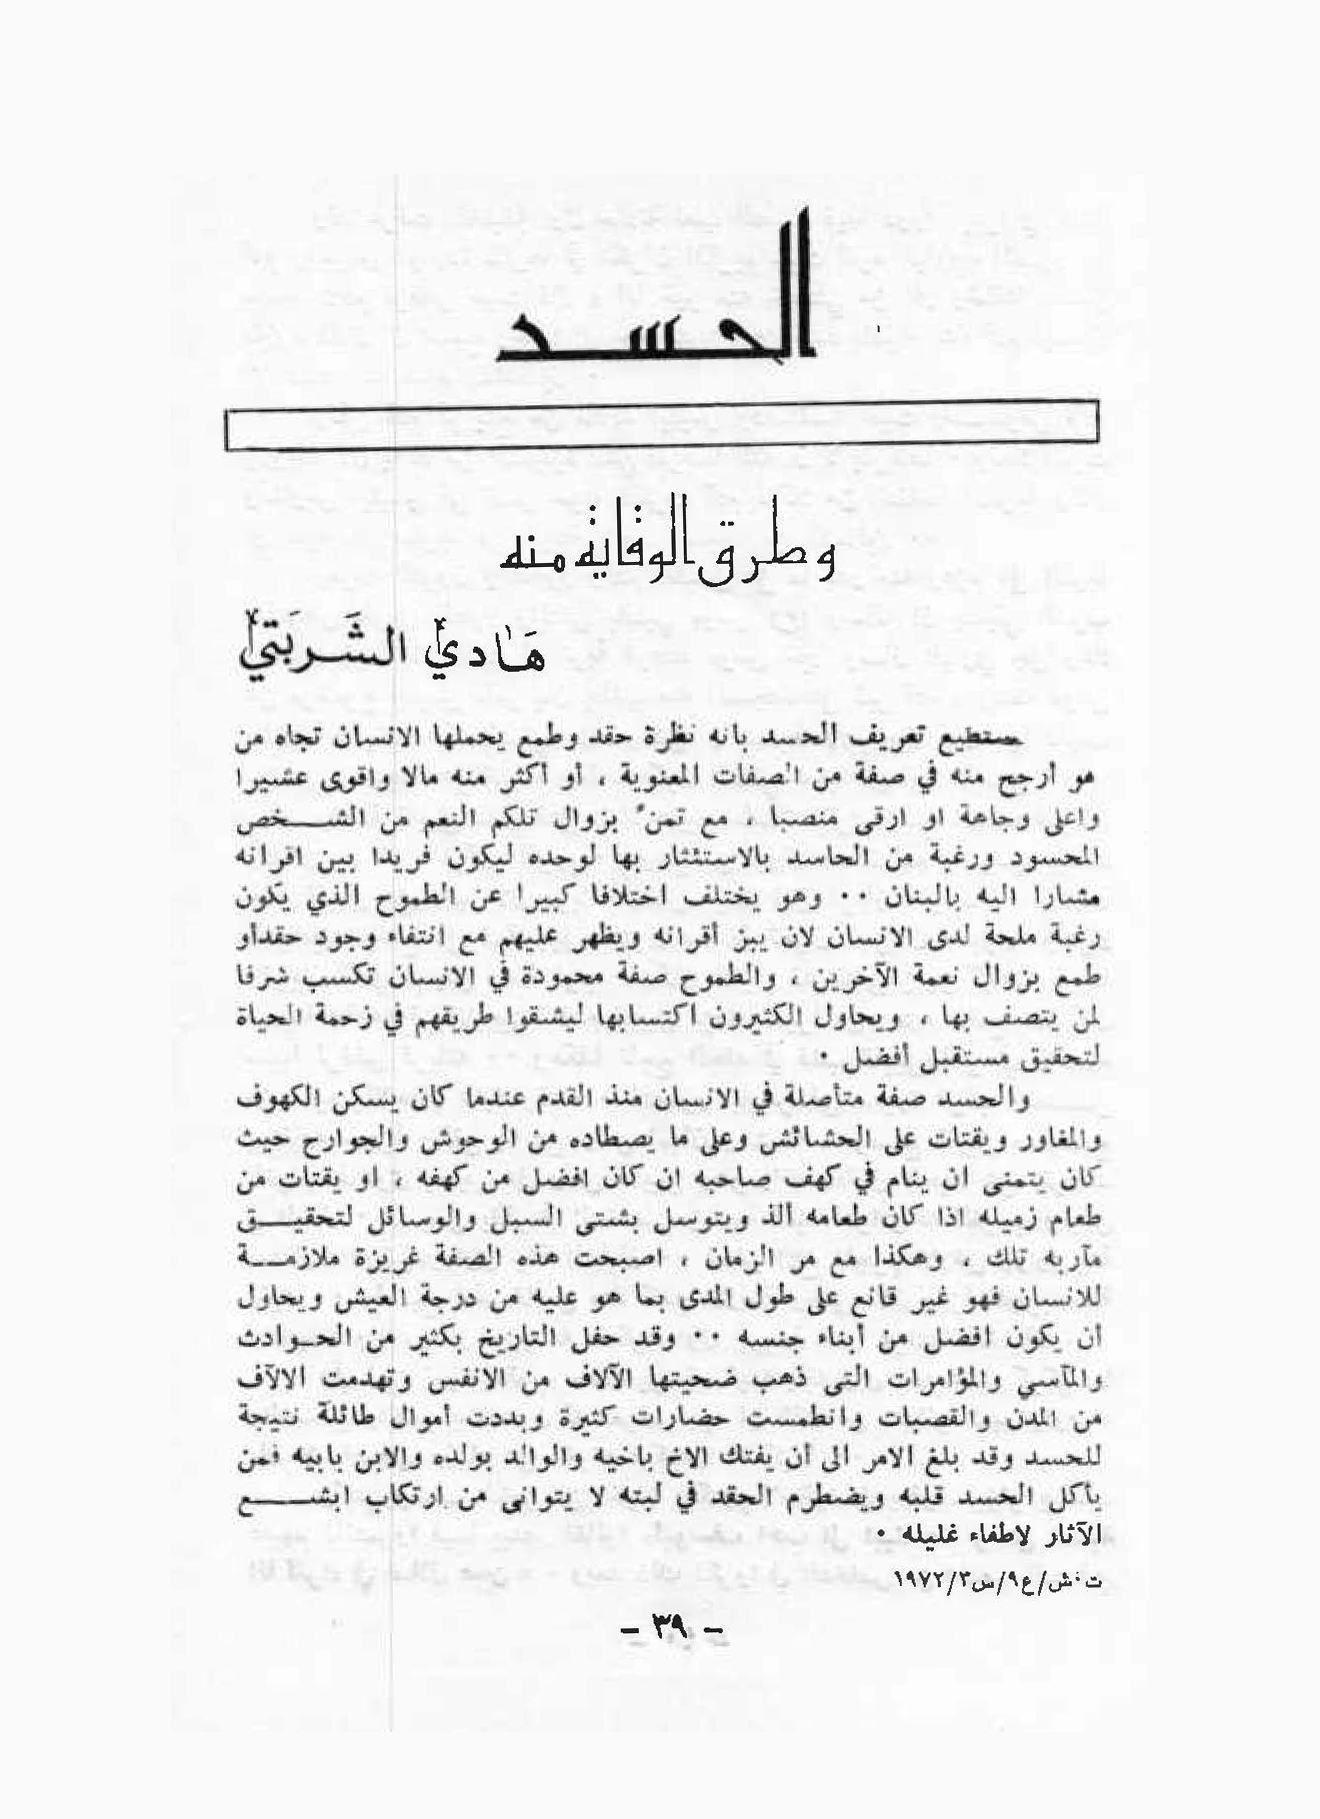 الحسد
وطرق الوقاية منه
هَادي الشَربَتي
نستطيع تعريف الحسد بانه نظرة حقد وطمع يحملها الانسان تجاه من
هو أرجح منه في صفة من الصفات المعنوية ، أو أكثر منه مالا واقوى عشيرا
واعلى وجاهة او ارقى منصبا ، مع تمن ّ بزوال تلكم النعم من الشـــخص
المحسود ورغبة من الحاسد بالاستئثار بها لوحده ليكون فريدا بين اقرانه
مشارا اليه بالبنان ٠٠ وهو يختلف اختلافا كبيرا عن الطموح الذي يكون
رغبة ملحة لدى الانسان لان يبز أقرانه ويظهر عليهم مع انتفاء وجود حقدأو
طمع بزوال نعمة الآخرين ، والطموح صفة محمودة في الانسان تكسب شرفا
لمن يتصف بها ، ويحاول الكثيرون اكتسابها ليشقوا طريقهم في زحمة الحياة
لتحقيق مستقبل أفضل ٠
والحسد صفة متأصلة في الانسان منذ القدم عندما كان يسكن الكهوف
والمغاور ويقتات على الحشائش وعلى ما يصطاده من الوحوش والجوارح حيث
كان يتمنى ان ينام في كهف صاحبه ان كان افضل من كهفه ، او يقتات من
طعام زميله اذا كان طعامه ألذ ويتوسل بشتى السبل والوسائل لتحقيــق
مآربه تلك ، وهكذا مع مر الزمان ، اصبحت هذه الصفة غريزة ملازمــة
للانسان فهو غير قانع على طول المدى بما هو عليه من درجة العيش ويحاول
أن يكون افضل من أبناء جنسه ٠٠ وقد حفل التاريخ بكثير من الحـوادث
والمآسي والمؤامرات التى ذهب ضحيتها الآلاف من الانفس وتهدمت الالآف
من المدن والقصبات وانطمست حضارات كثيرة وبددت أموال طائلة نتيجة
للحسد وقد بلغ الامر الى أن يفتك الاخ باخيه والوالد بولده والابن بابيه فمن
يأكل الحسد قلبه ويضطرم الحقد في لبته لا يتوانى من ارتكاب ابشــــع
الآثار لاطفاء غليله ٠
ت٠ش/ع٩/س٣/١٩٧٢
– ٣٩ –